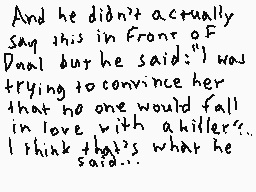 And he didn't actually
say this in front of
Dual but he said:"I was
trying to convince her
that no one would fall
in love with a killer"..
I think that's what he
said...